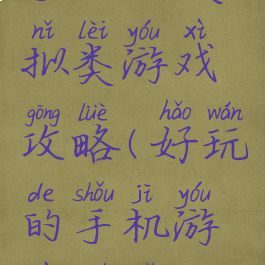 nǐ lèi yóu xì
拟类游戏
gōng lüè hǎo wán
攻略(好玩
de shǒu jī yóu
的手机游